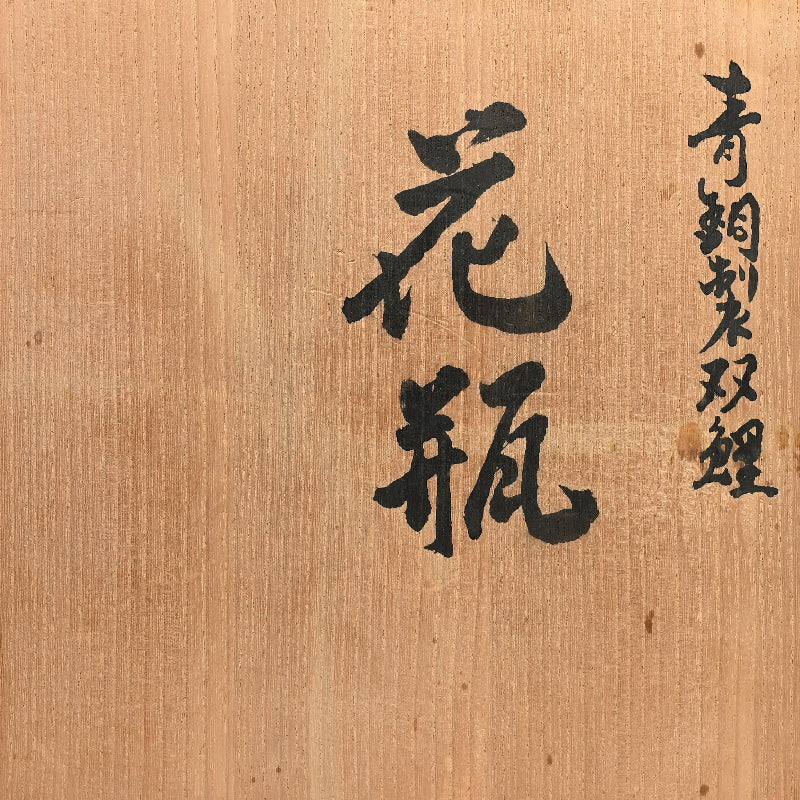 青銅製双鯉
花瓶